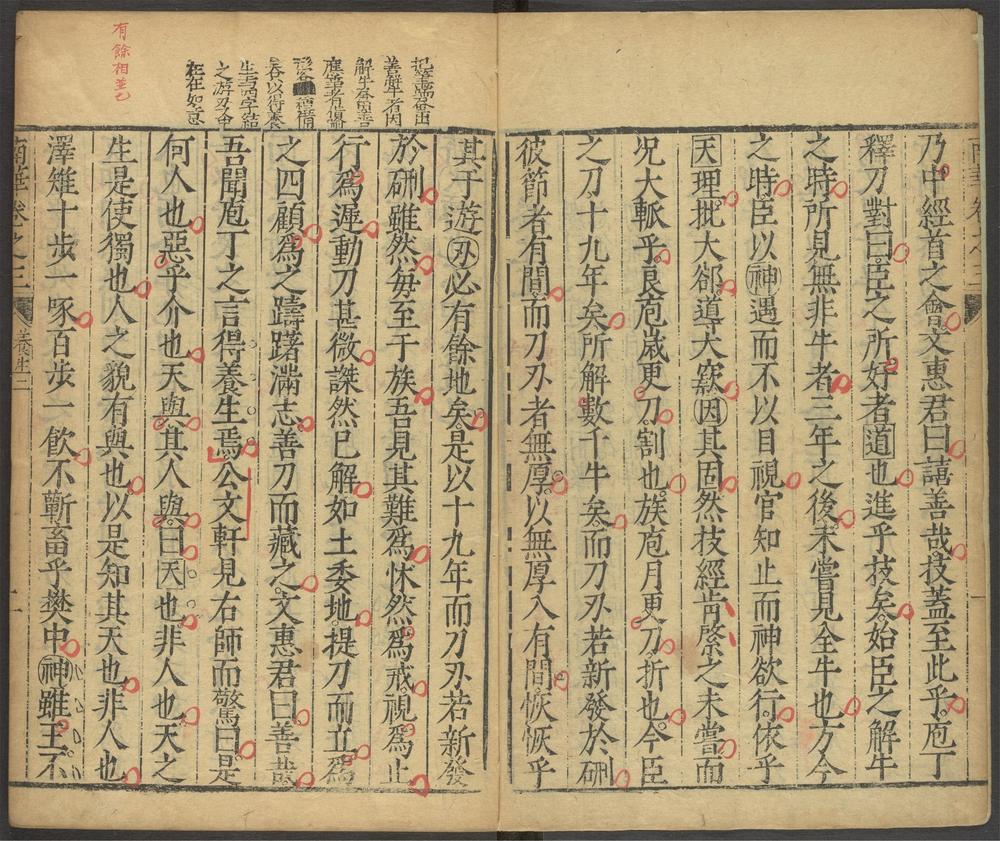 乃中經首之會文惠君曰譆善哉技蓋至此乎庖丁
釋刀對曰臣之所好者道也進乎技矣始臣之解牛
之時所見無非牛者三年之後未嘗見全牛也方今
之時臣以神遇而不以目視官知止而神欲行依乎
天理批大郤導大窾因其固然技經肯綮之未嘗而
况大軱乎良庖歲更刀割也族庖月更刀折也今臣
之刀十九年矣所解數千牛矣而刀刃若新發於硎
彼節者有間而刀刃者無厚以無厚入有間恢恢乎
其于遊刃必有餘地矣是以十九年而刀刃若新發
於硎雖然每至于族吾見其難爲怵然爲戒視爲止
行爲遲動刀甚微謋然已解如土委地提刀而立爲
之四顧爲之躊躇滿志善刀而藏之文惠君曰善哉
吾聞庖丁之言得養生焉公文軒見右師而驚曰是
何人也惡乎介也天與其人與曰天也非人也天之
生是使獨也人之貌有與也以是知其天也非人也
澤雉十步一啄百步一飲不蘄畜乎樊中神雖王不
南華卷之三 養生 二
善解牛者因
解牛
生
之游刃
在如意
有餘相